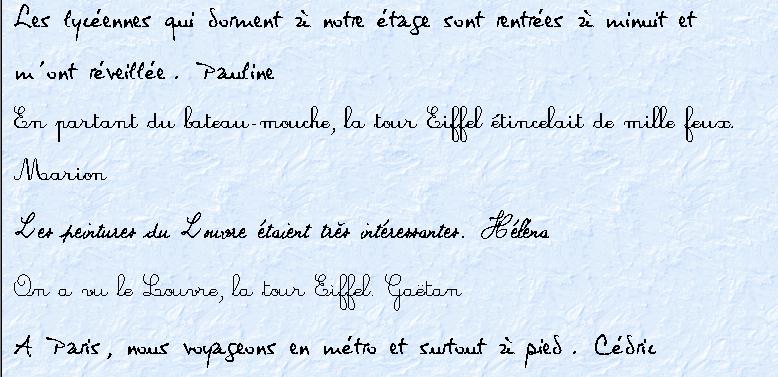 Les lycéennes qui dorment à notre étage sont rentrées à minuit et
m'ont réveillée. Pauline
En partant du bateau-mouche, la tour Eiffel étincelait de mille feux.
Marion
Les peintures du Louvre étaient très intéressantes. Héléna
On a vu le Louvre, la tour Eiffel. Gaëtan
A Paris, nous voyageons en métro et surtout à pied. Cédric